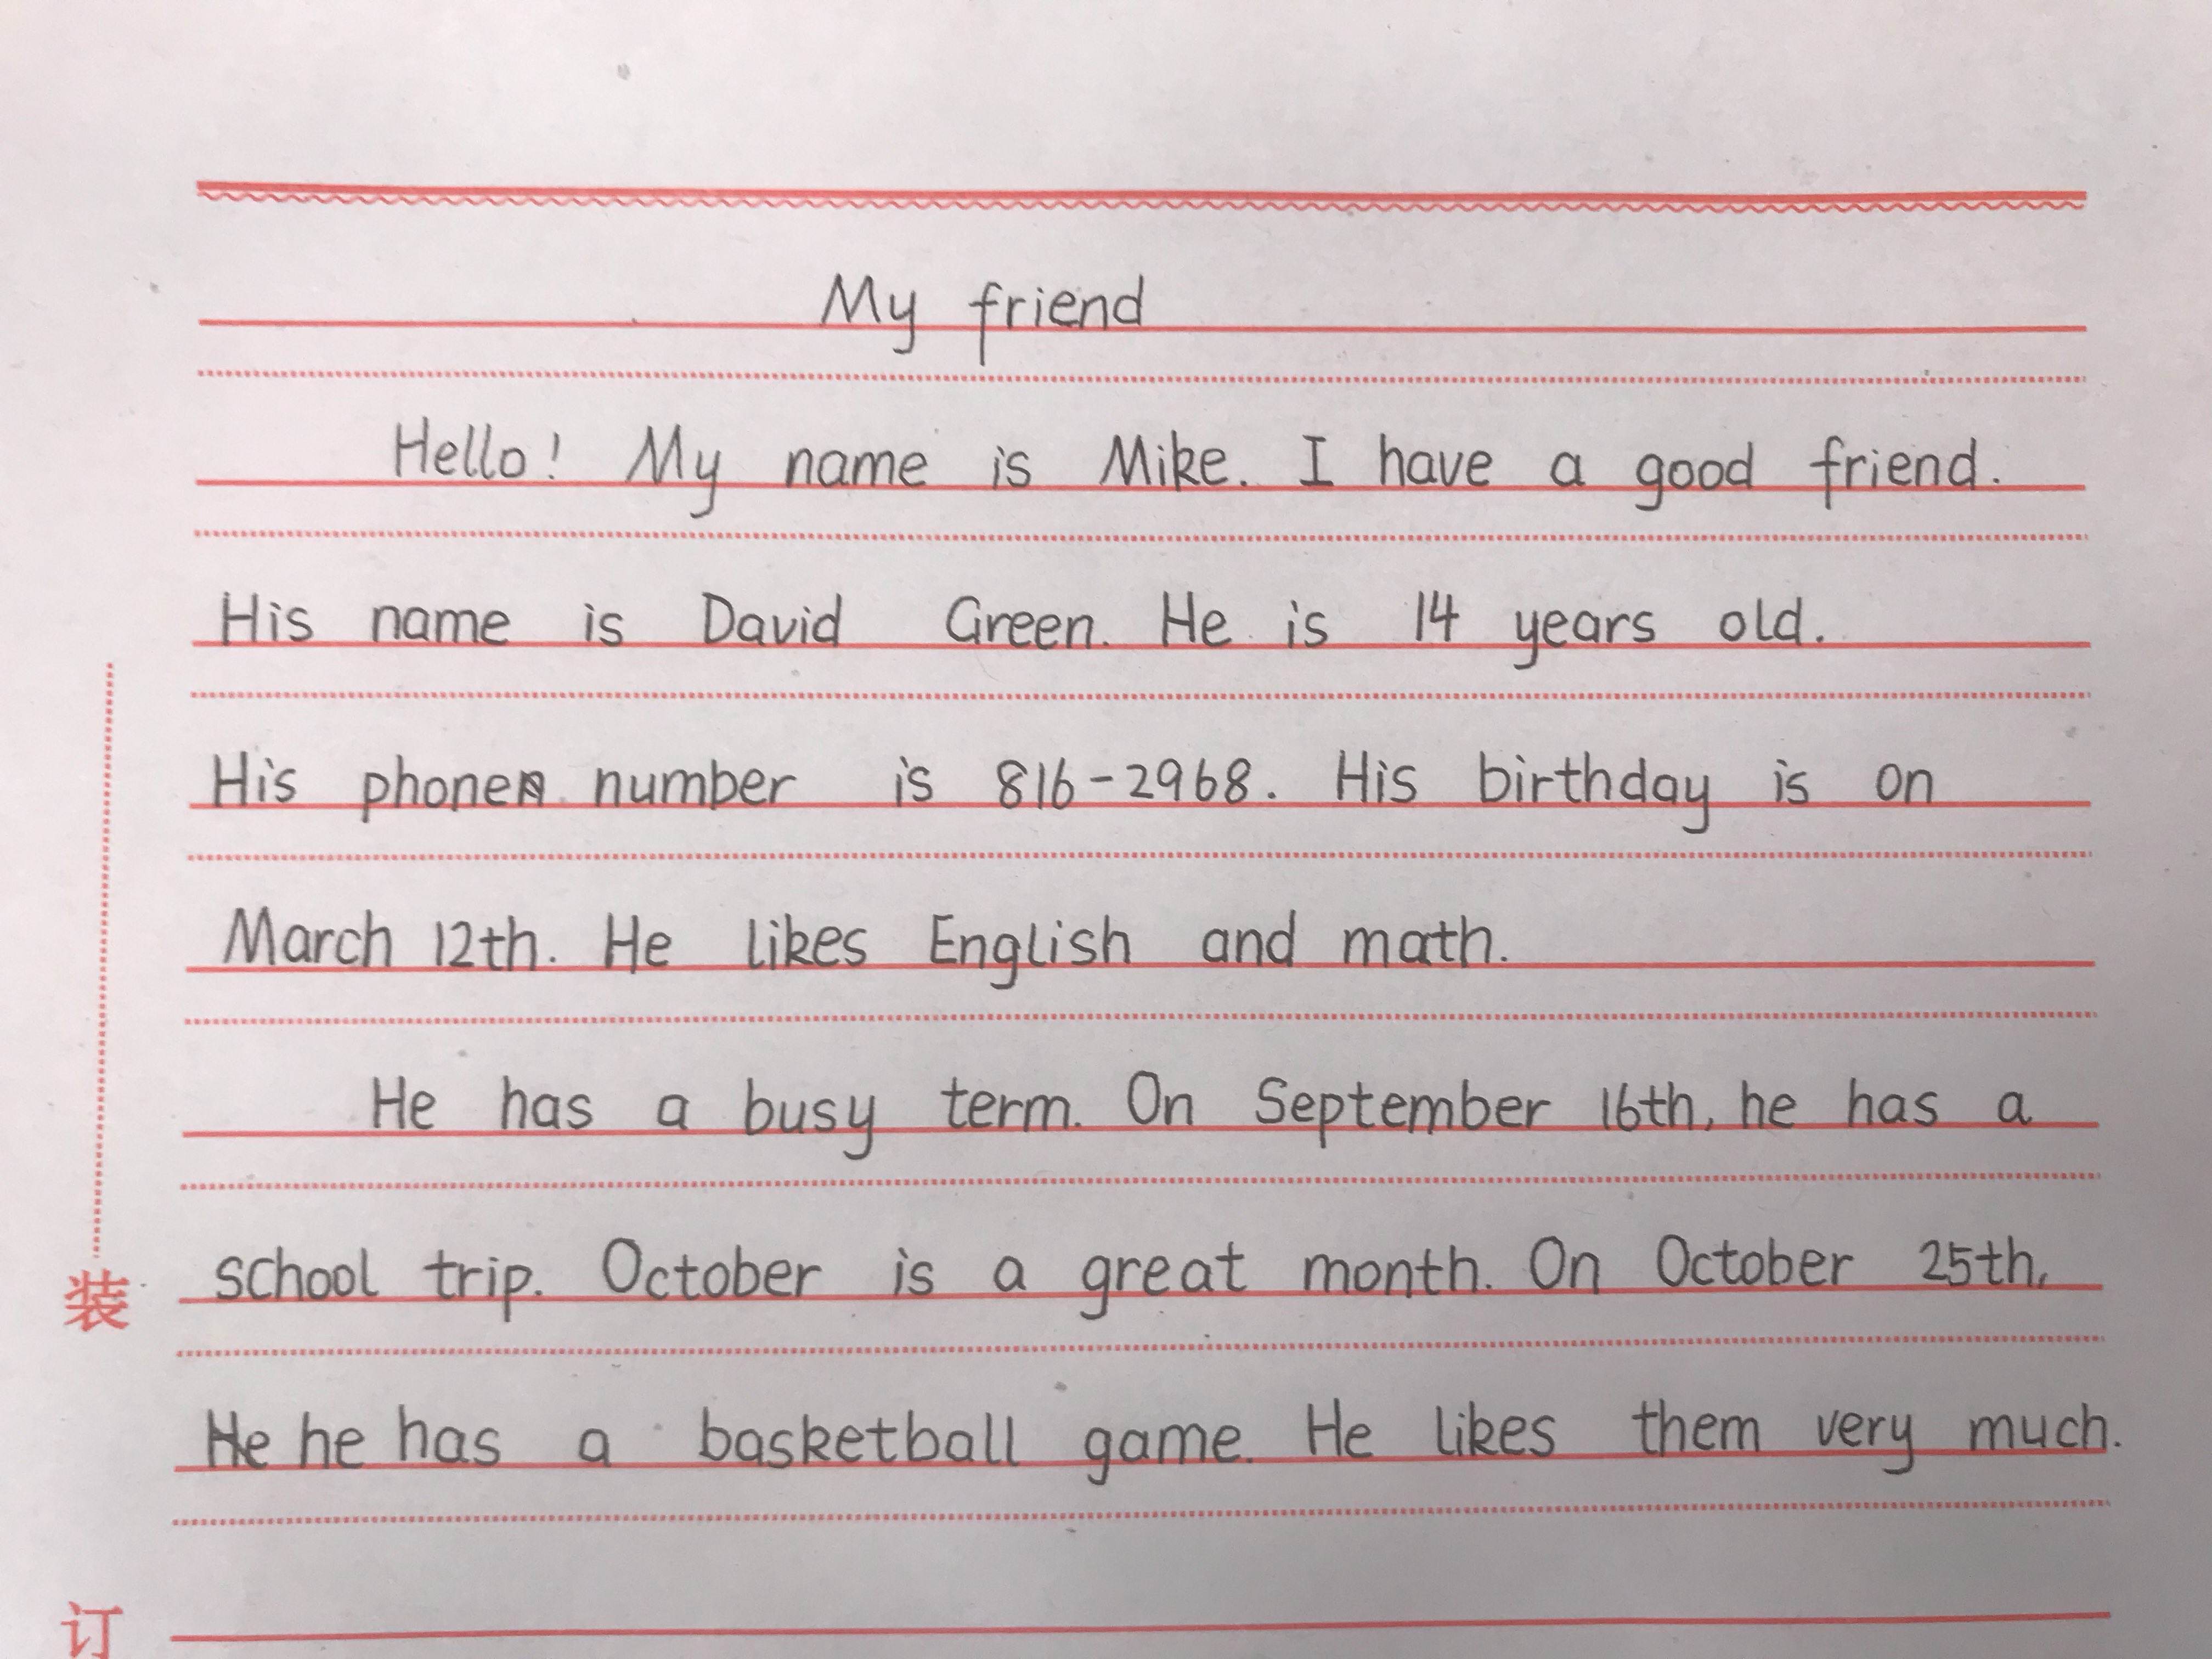 My friend
Hello! My name is Mike. I have a good friend.
His name is David Green. He is 14 years old.
His phone number is 816-2968. His birthday is on
March 12th. He likes English and math.
He has a busy term. On September 16th, he has a
school trip. October is a great month. On October 25th,
He he has a basketball game. He likes them very much.
装
订